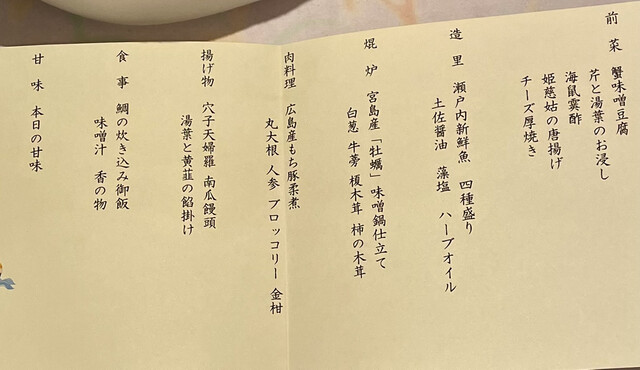 前菜 蟹味噌豆腐
芹と湯葉のお浸し
海鼠霙酢
姫慈姑の唐揚げ
チーズ厚焼き
造里 瀬戸内新鮮魚 四種盛り
土佐醤油 藻塩 ハーブオイル
焜炉 宮島産「牡蠣」味噌鍋仕立て
白葱 牛蒡 榎木茸 柿の木茸
肉料理 広島産もち豚柔煮
丸大根 人参 ブロッコリー 金柑
揚げ物 穴子天婦羅 南瓜饅頭
湯葉と黄韮の餡掛け
食事 鯛の炊き込み御飯
味噌汁 香の物
甘味 本日の甘味